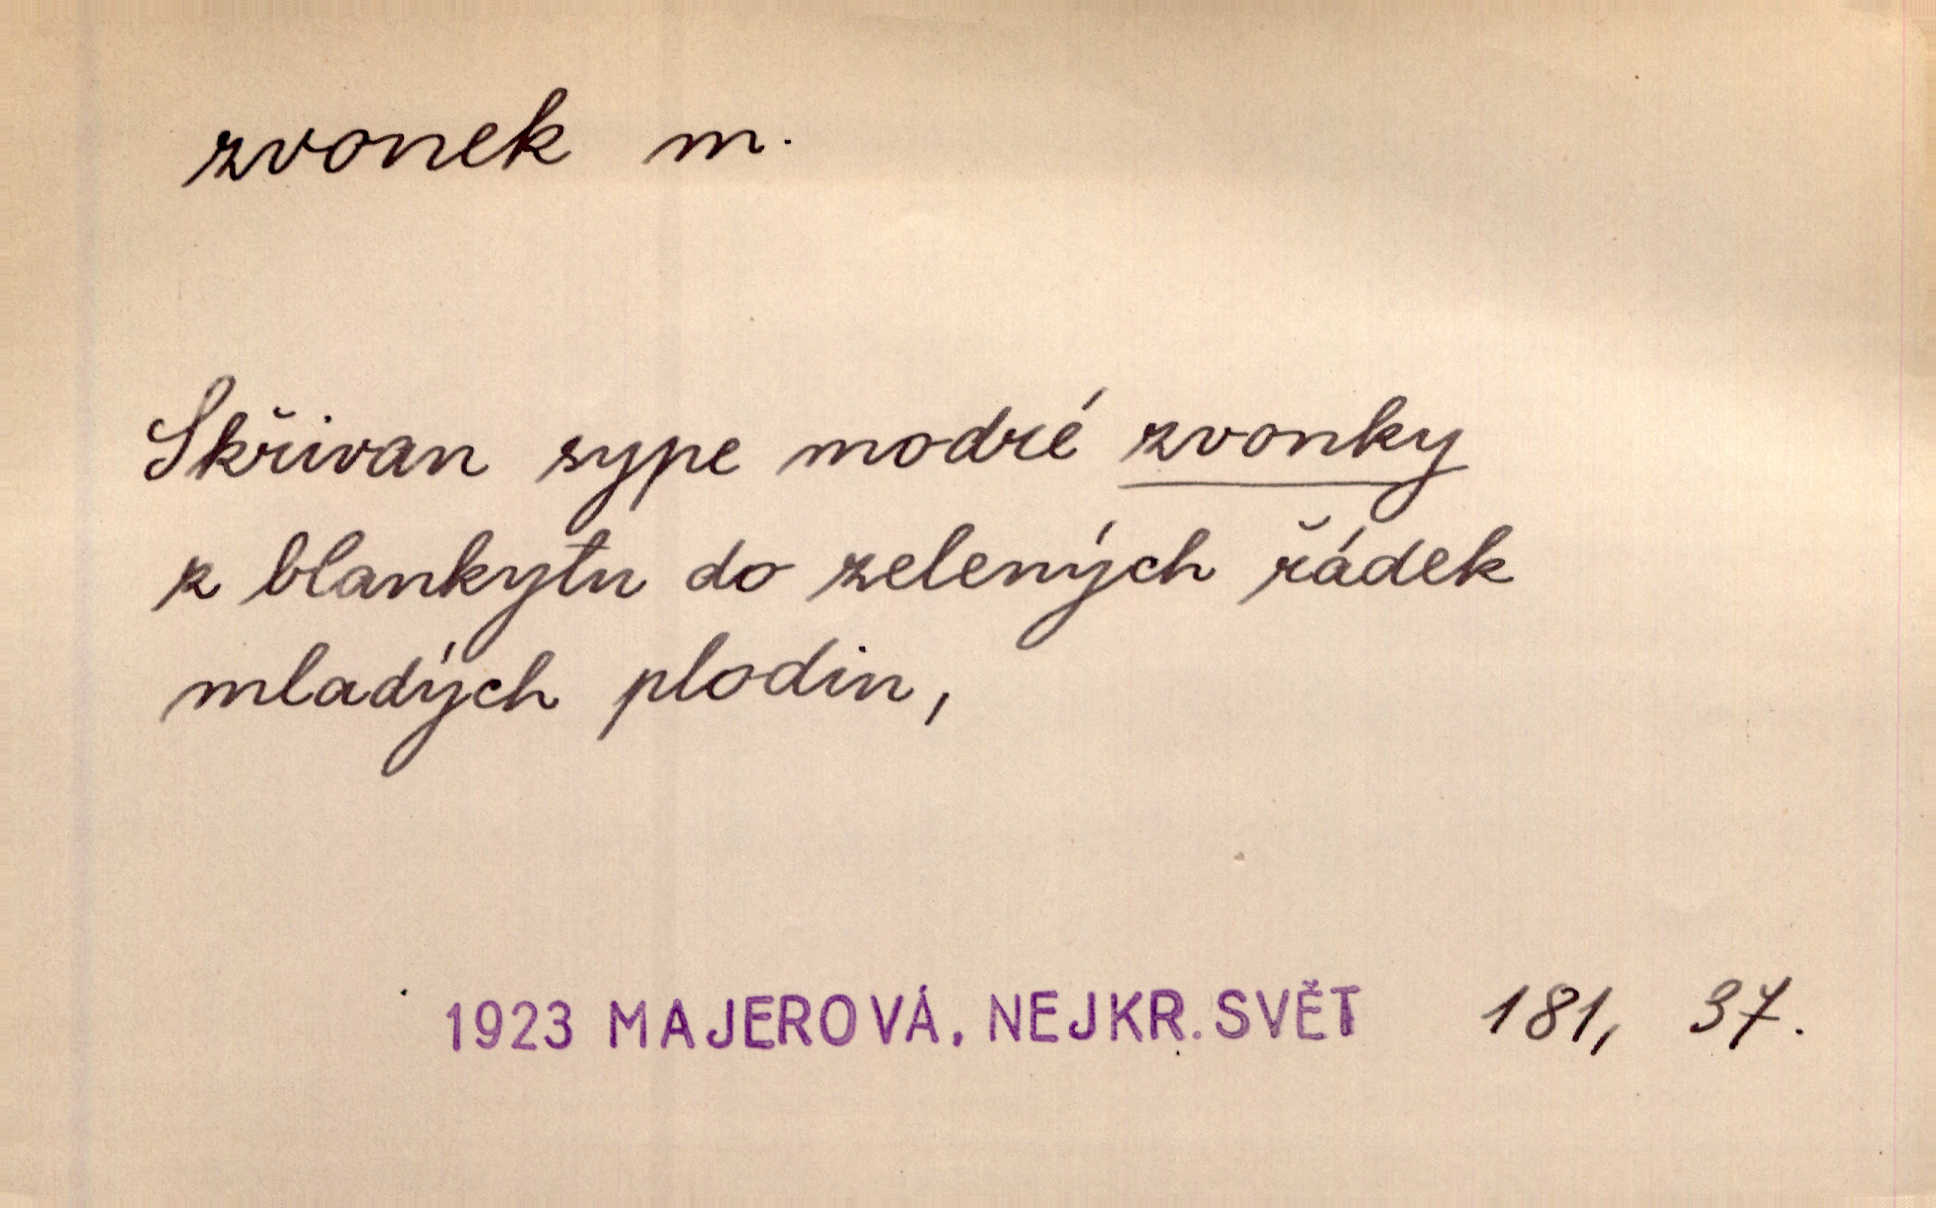 zvonek m.
Skřivan sype modré zvonky
z blankytu do zelených řádek
mladých plodin,
1923 MAJEROVÁ, NEJKR. SVĚT 181, 37.